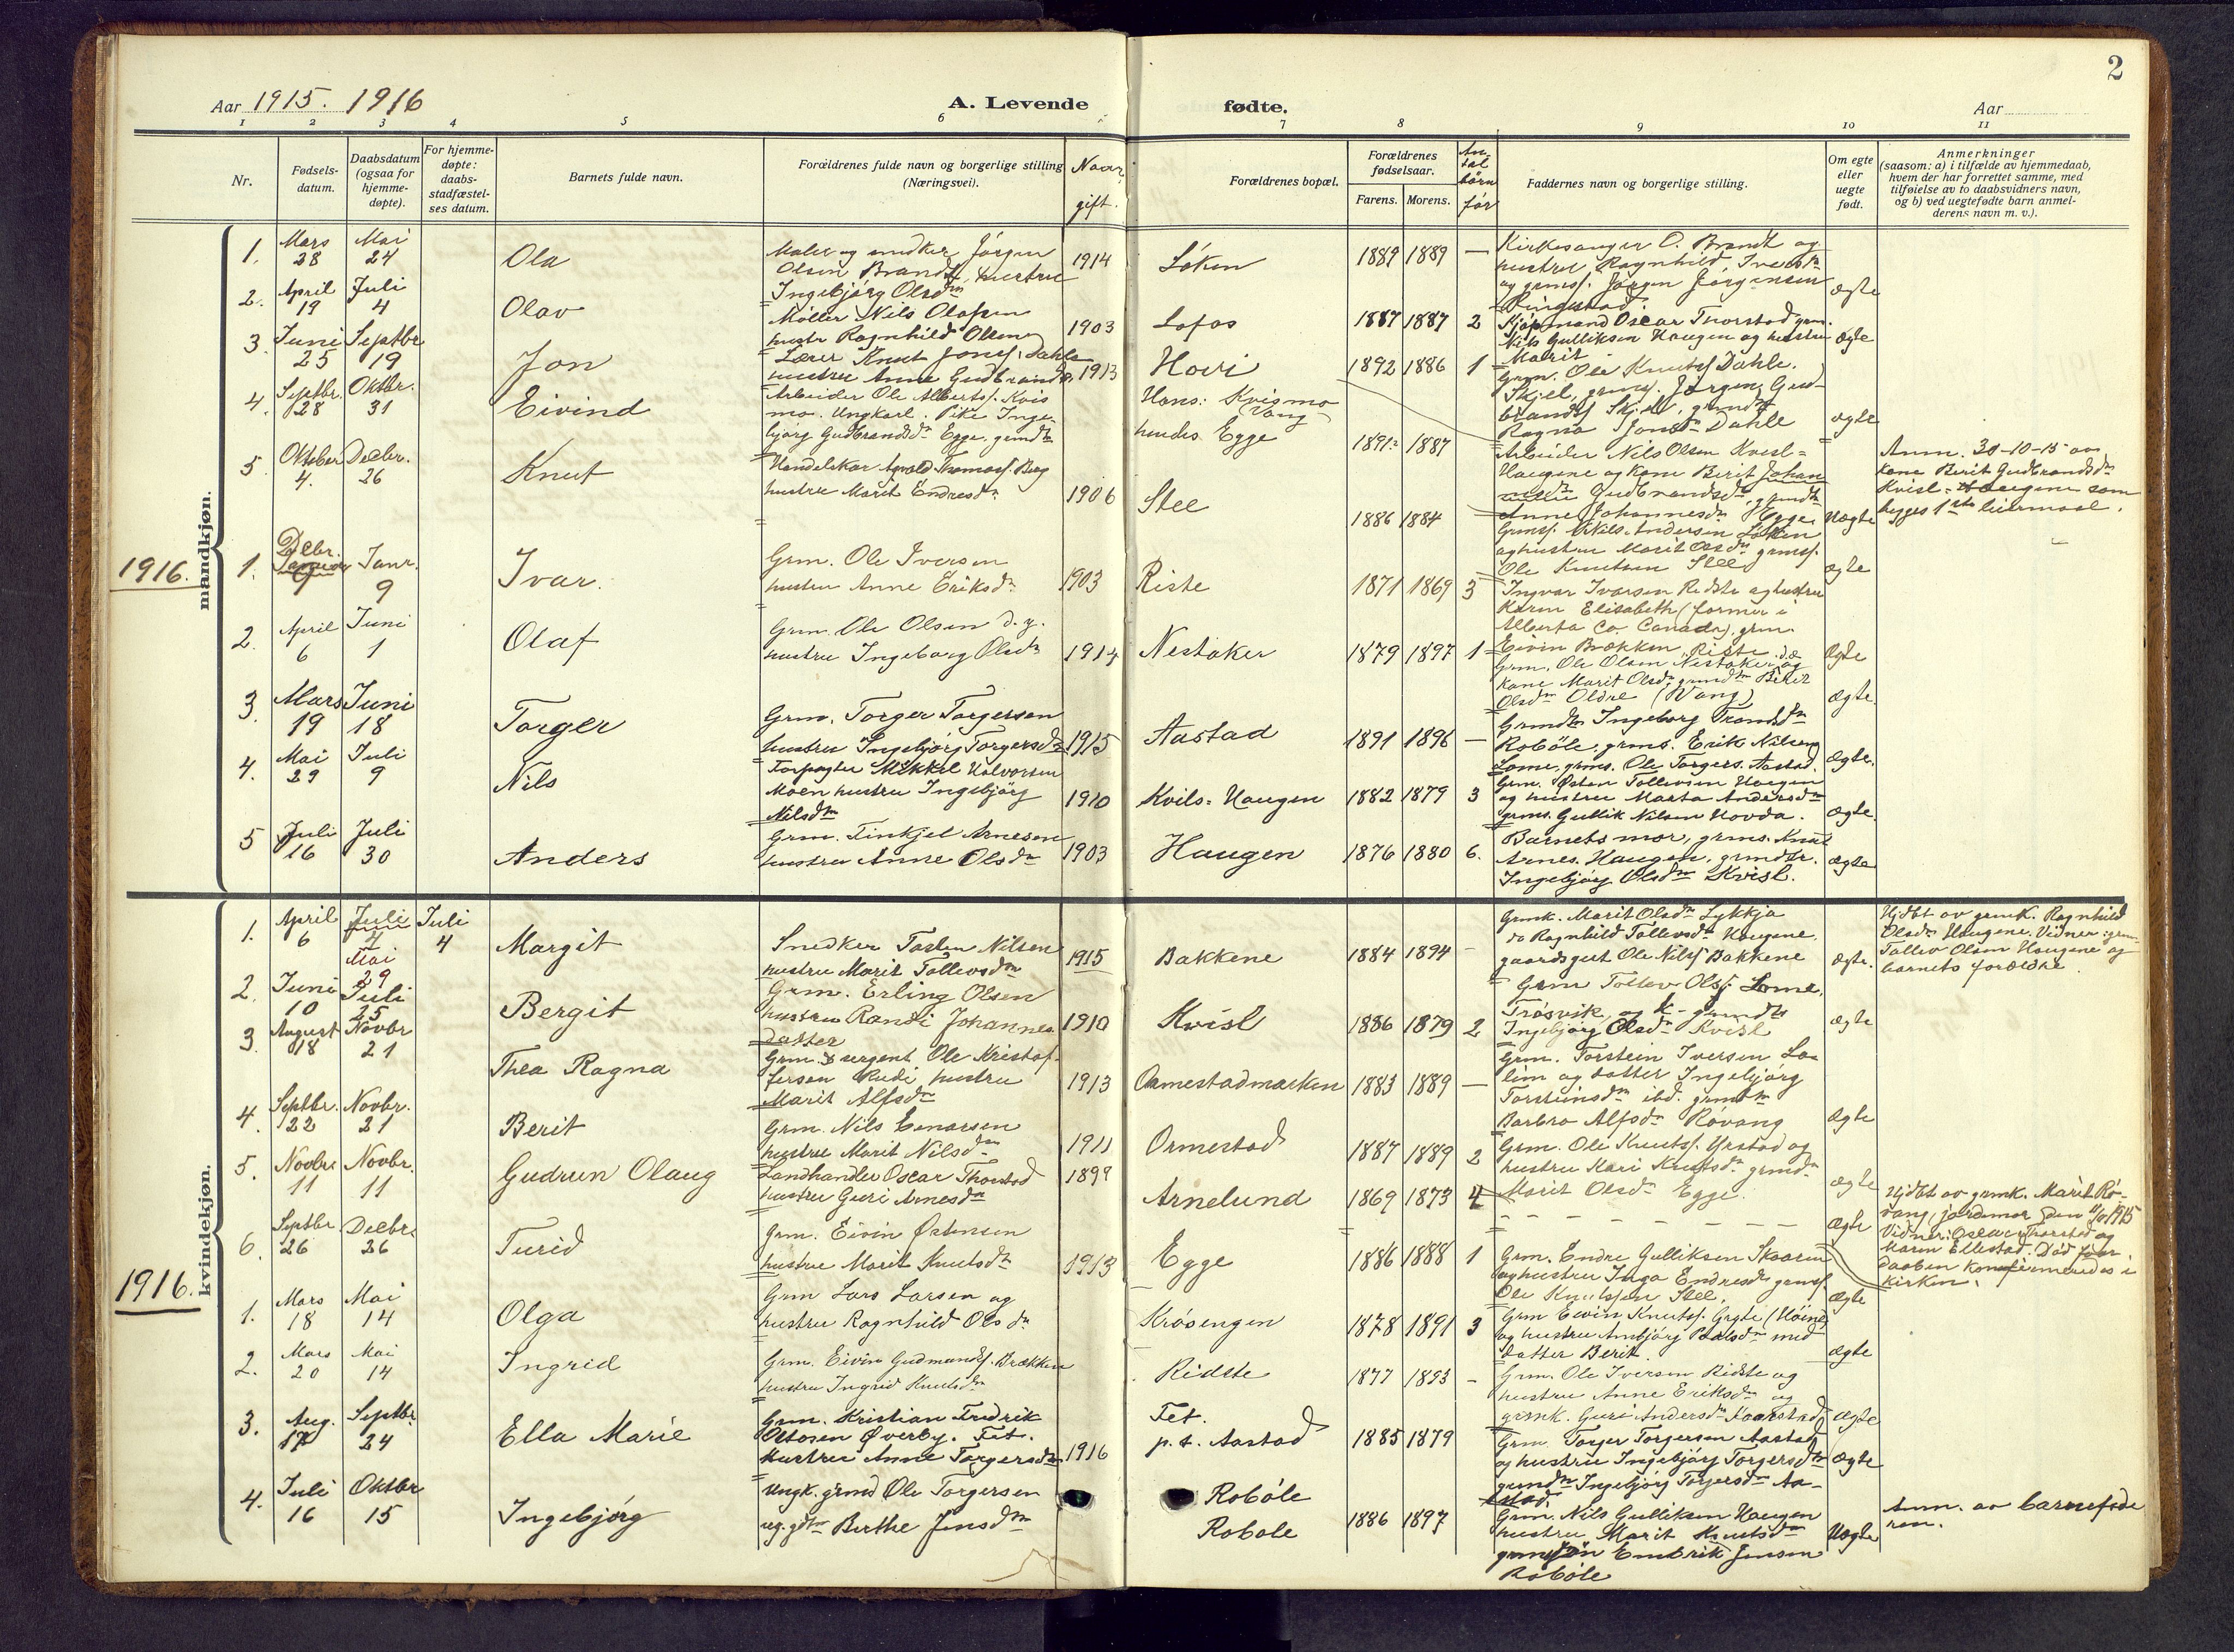 2
Aar 1915. 1916
A. Levende fødte.
Aar
1 2 3 4 5 6 7 8 9 10 11
Nr.
Fødsels-
datum.
Daabsdatum
(ogsaa for
hjemme-
døpte).
For hjemme-
døpte:
daabs-
stadfæstel-
ses datum.
Barnets fulde navn.
Forældrenes fulde navn og borgerlige stilling
(Næringsvei).
Naar
gift.
Forældrenes bopæl.
Forældrenes
fødselsaar.
Farens. Morens.
An-
tal
børn
før
Faddernes navn og borgerlige stilling.
Om egte
eller
uegte
født.
Anmerkninger
(saasom: a) i tilfælde av hjemmedaab,
hvem der har forrettet samme, med
tilføielse av to daabsvidners navn,
og b) ved uegtefødte barn anmel-
derens navn m. v.).
mandkjøn.
1. Mars 28 Mai 24 Ola
Maler og snedker Jørgen
Olsen Brandt, hustru
Ingebjørg Olsdtr
1914 Løken 1889 1889 —
Kirkesanger O. Brandt og
hustru Ragnhild Iversdtr
og grmss. Jørgen Jørgensen
Ringestad.
ægte
2. April 19 Juli 4 Olav
Møller Nils Olafsen
hustr Ragnhild Olsen
1903 Lofos 1887 1887 2
Kjøpmand Oscar Thorstad grm.
Nils Gulliksen Haugen og hustru
Marit
ægte
3. Juni 25 Septbr 19 Jon
Lærer Knut Jonss. Dahle
hustru Anne Gudbrandsdr.
1913 Hovi 1892 1886 1
Grm. Ole Knutss Dahle.
Skjel, grmss. Jørgen Gud-
brandss Skjel, grmdtr
Ragna Jonsdtr Dahle
ægte
4. Septbr. 28 Oktbr. 31 Eivind
Arbeider Ole Albertss. Kvis
mo. Ungkarl. Pike Inge-
bjørg Gudbrandsdtr Egge, grmdtr
Hans: Kvismo
(Vang)
hendes Egge
1891 1887
Arbeider Nils Olsen Kvisl=
Haugene og kone Berit
Gudbrandsdtr, grmdtr
Anne Johannesdtr Egge
Uægte
Anm. 30-10-15 av
kone Berit Gudbrandsdtr
Kvisl=Haugene som
begges 1ste leiermaal.
5. Oktober 4. Decbr. 26 Knut
Handelskar. Thomass. Berg
hustru Marit Endresdtr
1906 Slee 1886 1884
Grmss. Nils Andersen Løken
og hustru Marit Olsdtr grmss.
Ole Knutsen Slee
ægte
1916.
1. Decbr. 9 Janr. 9 Ivar.
Grm. Ole Iversen
hustru Anne Eriksdtr
1903 Riste 1871 1869 3
Ingvar Iversen Redste og hustru
Karen Elisabeth (farmer i
Alberta Co. Canada), grm.
Eivin Brækken, Riste
Ægte
2. April 6 Juni 1 Olaf
Grm. Ole Olsen d. y.
hustru Ingeborg Olsdtr
1914 Nestaker 1879 1897 1
Grm. Ole Olsen Nestaker og
kone Marit Olsdtr grmdtr Berit
Olsdtr Oldre (Vang)
Ægte
3. Mars 19 Juni 18 Torger
Grm. Torger Torgersen
hustru Ingebjørg Torgersdtr
1915 Aastad 1891 1896 —
Grmdtr Ingeborg Trondsdtr
Robøle, grms. Erik Nilsen
Lome, grms. Ole Torgers. Aastad.
Ægte.
4. Mai 29 Juli 9 Nils
Forpagter Mikkel Halvorsen
Moen hustru Ingebjørg
Nilsdtr
1910 Kvils=Haugen 1882 1879 3
Grm. Østen Tollevsen Haugen
og hustru Marta Andersdtr
grms. Gullik Nilsen Hovda.
Ægte.
5 Juli 16 Juli 30 Anders
Grm. Finkjel Arnesen
hustru Anne Olsdtr
1903 Haugen 1876 1880 6.
Barnets mor, grms. Knut
Arnes. Haugen, grmdtr.
Ingebjørg Olsdtr Kvisl.
Ægte
kvindekjøn.
1. April 6 Juli 4 Mai 29 Juli 4 Margit
Snedker Torsten Nilsen
hustru Marit Tollevsdtr
1915 Bakkene 1884 1894 -
Grmk. Marit Olsdtr Lykkja
do Ragnhild Tollevsdtr Haugene.
gaardsgut Ole Nilss Bakkene
ægte.
Hjdbt av grmk. Ragnhild
Olsdtr Haugene. Vidner: grm.
Tollev Olsen Haugene og
barnets forældre.
2. Juni 10 Juli 25 Bergit
Grm. Erling Olsen
hustru Randi Johannes
datter
1910 Kvisl 1886 1879 2
Grm Tollev Olss. Lome,
Trøsvik, og k- grmdtr
Ingebjørg Olsdtr Kvisl
ægte
3 August 18 Novbr 21 Thea Ragna
Grm. & sergent Ole Kristof-
fersen Rudi, hustru
Marit Alfsdtr
1913 Ormestadmarken 1883 1889 —
Grm. Torstein Iversen Lo-
lim og datter Ingebjørg
Torsteinsdtr ibd. grmdtr
Barbro Alfsdtr Røvang
Ægte
4. Septbr. 22 Novbr. 21 Berit
Grm. Nils Einarsen
hustru Marit Nilsdtr
1911 Ormestad 1887 1889 2
Grm. Ole Knutss. Ystad og
hustru Kari Knutsdtr grmdtr
Marit Olsdtr Egge.
ægte
5. Novbr 11 Novbr. 11 Gudrun Olaug
Landhandler Oscar Thorstad
hustru Guri Arnesdtr
1899 Arnelund 1869 1873 4
- - - - - - - -
Ægte
Hjdbt av grmk. Marit Rø-
vang, jordemor den 11/11 1915
Vidner: Oscar Thorstad og
Maren Ellestad. Død før
daaben konfirmeredes i
kirken.
6. Septbr. 26 Decbr. 26 Turid
Grm. Eivin Østensen
hustru Marit Knutsdtr
1913 Egge 1886 1888 1
Grm. Endre Gulliksen Skaaren
og hustru Inga Endresdtr grmss.
Ole Knutssen Slee.
Ægte
1916.
1. Mars 18 Mai 14 Olga
Grm Lars Larsen og
hustru Ragnhild Olsdtr
Krøsengen 1878 1891 3
Grm Eivin Knutss. (Høine)
og hustru Ambjørg Paalsdtr med
datter Berit.
Ægte
2. Mars 20 Mai 14 Ingrid
Grm. Eivin Gudmundss. Brækken
hustru Ingrid Knutsdtr
Ridste 1877 1893 -
Grm. Ole Iversen Ridste og
hustru Anne Eriksdtr og
grmk. Guri Andersdtr Kaarstad
Ægte
3. Aug. 17 Septbr. 24 Ella Marie
Grm. Kristian Fredrik
Ottosen Øverby. Fet.
Hustru Anne Torgersdtr
1916
Fet.
p. t. Aastad
1885 1879
Grm. Torger Torgersen Aastad
og hustru Ingebjørg Torgersdtr
grmdtr Ingebjørg Torgersdtr Aa-
stad.
Ægte
4. Juli 16 Oktbr 15 Ingebjørg
Ungk. grmd Ole Torgersen
ug. gdtr Berthe Jensdtr
Robøle
Robole
1886 1897
Grm. Nils Gulliksen Haugen
hustru Marit Knutsdtr
grms Jon Embrik Jensen
Robøle
Uægte
Anm. av barnefade
ren.